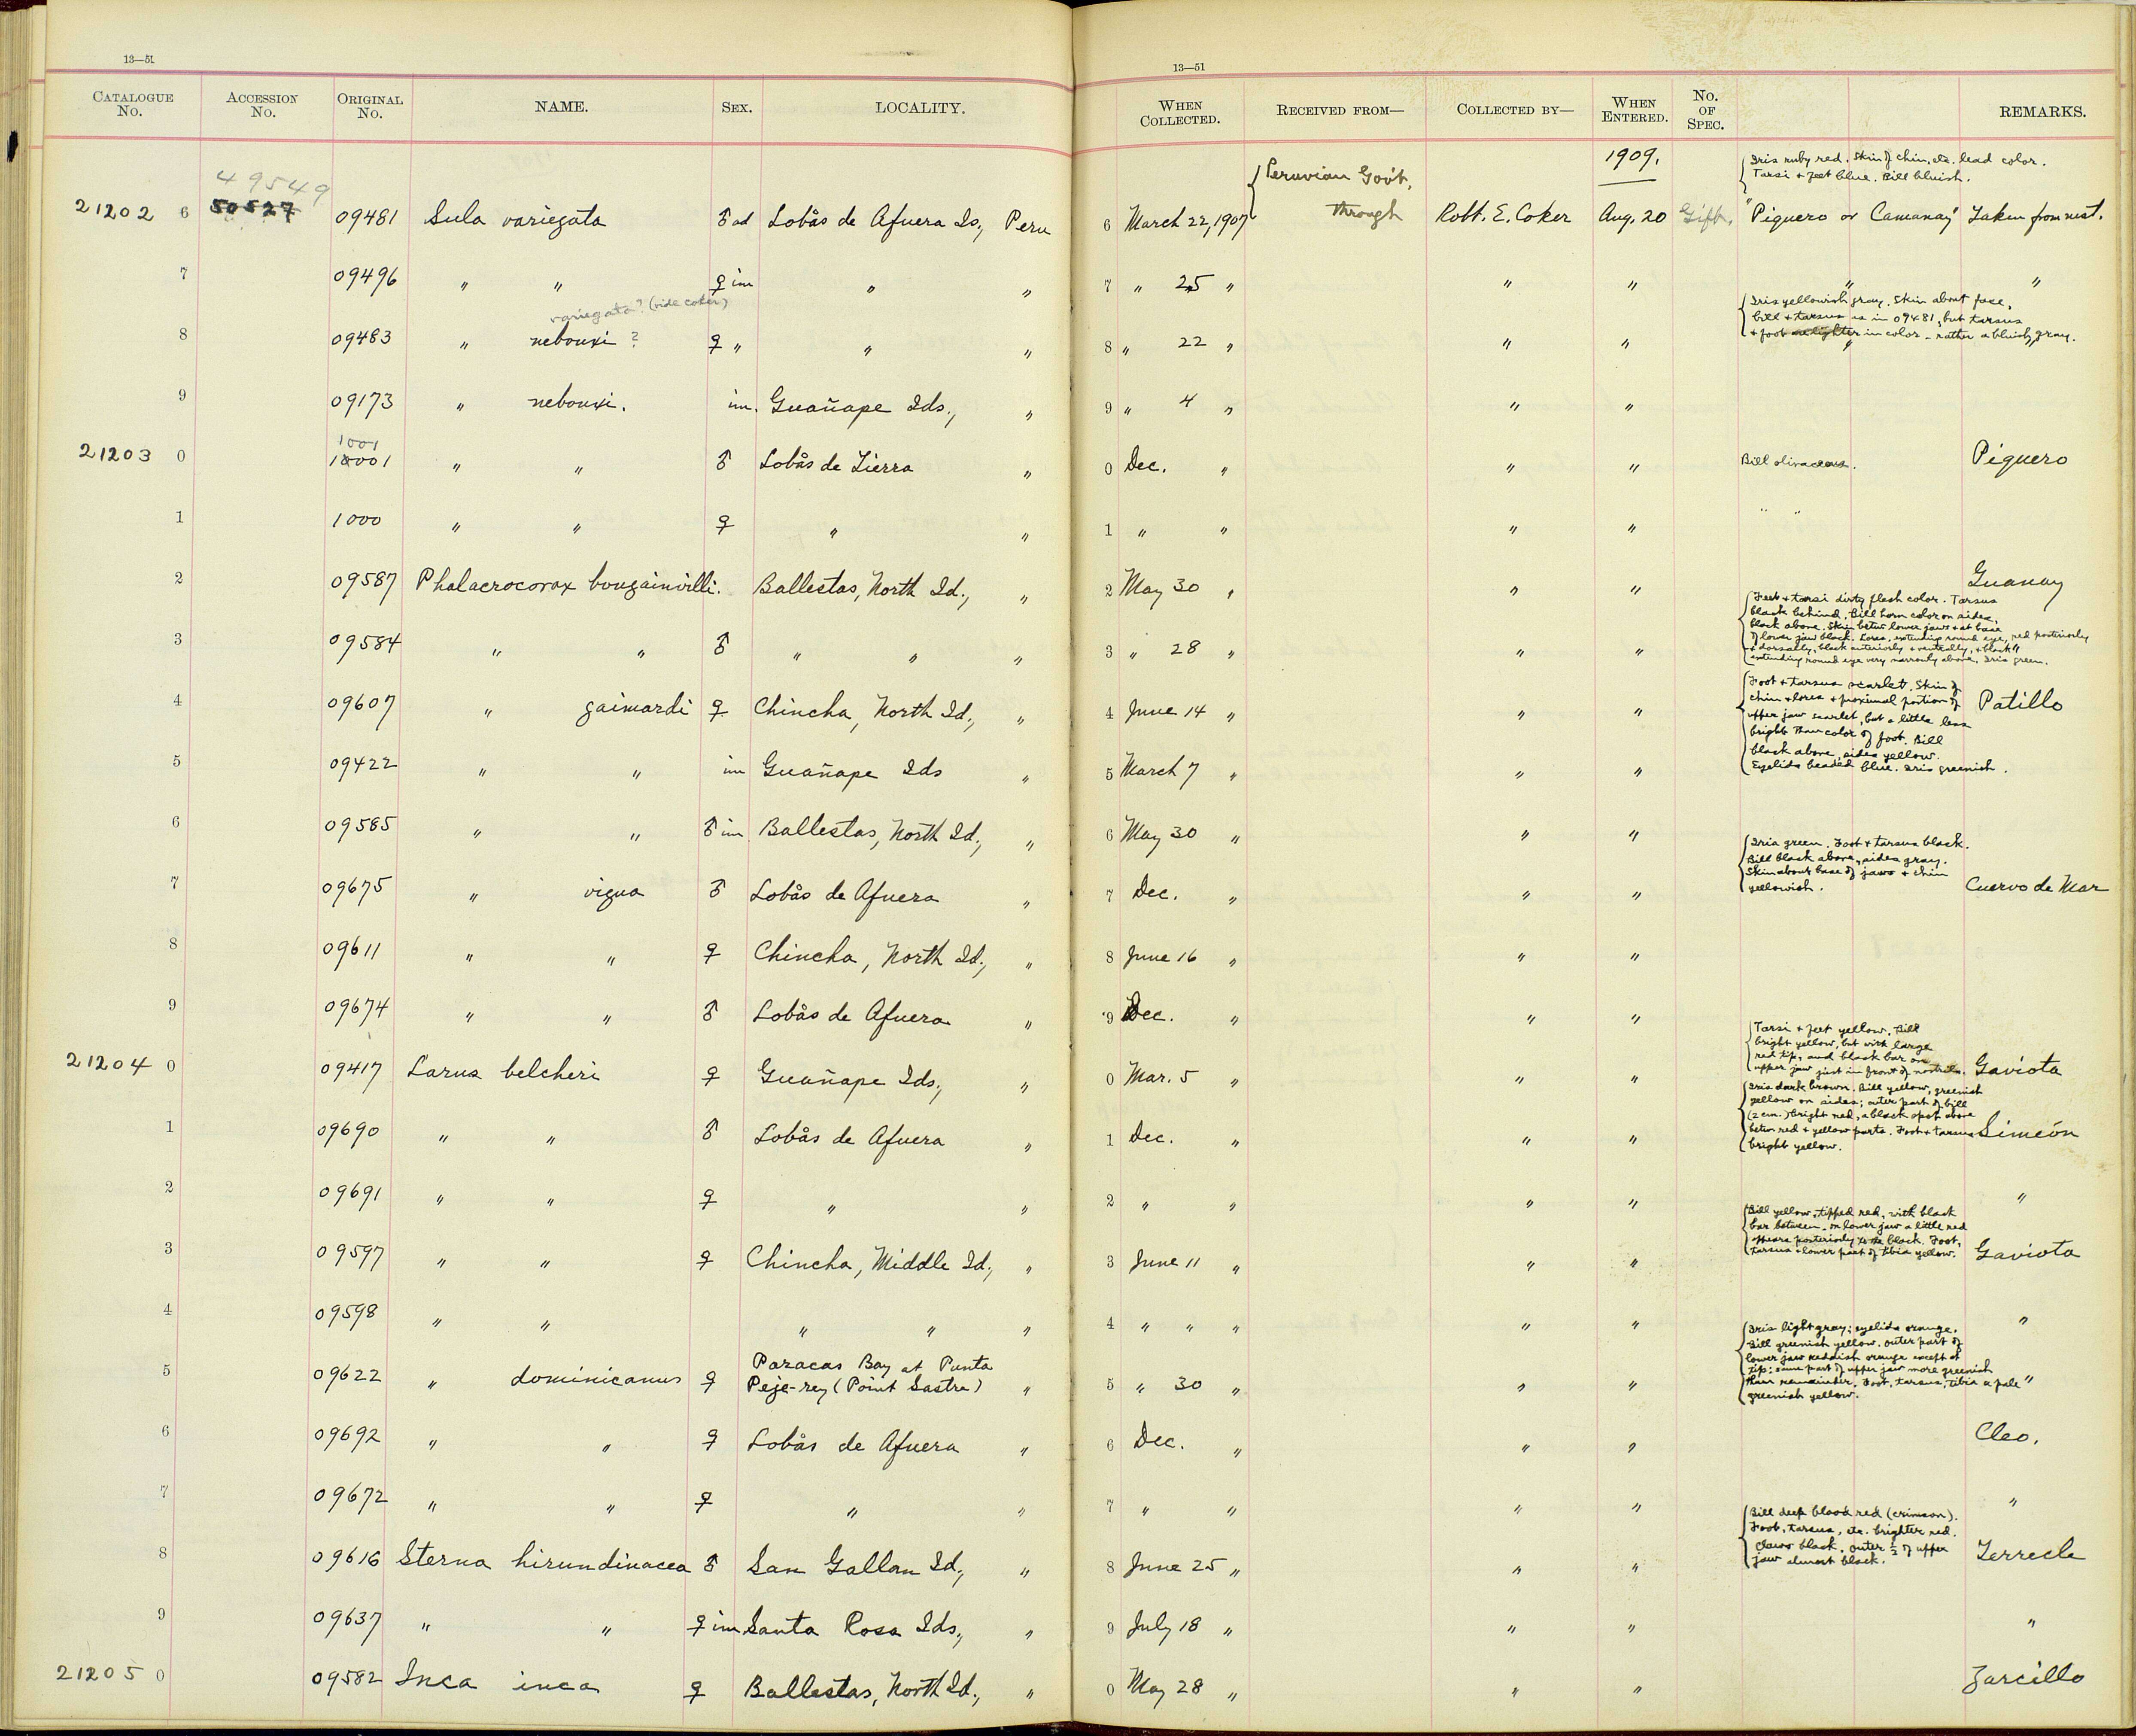 13—51
13—51
CATALOGUE No. ACCESSION No. ORIGINAL No. NAME. SEX. LOCALITY. WHEN COLLECTED. RECEIVED FROM— COLLECTED BY— WHEN ENTERED. No. OF SPEC. REMARKS.
49549
1909.
Iris ruby red. Skin of chin, etc. lead color.
Tarsi + feet blue. Bill bluish.
Peruvian Gov't.
21202 6 50527 09481 Sula variegata ♂ ad Lobås de Afuera Is., Peru 6 March 22, 1907 through Robt. E. Coker Aug. 20 Gift. "Piquero or Camanay" Taken from nest.
7 09496 " " ♀ im " " 7 " 25 " " " " "
variegata? (vide Coker)
Iris yellowish gray. Skin about face,
bill + tarsus as in 09481, but tarsus
+ foot lighter in color - rather a bluish gray.
8 09483 " nebouxi ? ♀ " " " 8 " 22 " " " "
9 09173 " nebouxi. im. Guañape Ids., " 9 " 4 " " "
1001
21203 0 10001 " " ♂ Lobås de Tierra " 0 Dec. " " " Bill olivaceous. Piquero
1 1000 " " ♀ " " 1 " " " " " "
2 09587 Phalacrocorax bougainvilli. Ballestas, North Id., " 2 May 30 " " " Guanay
Feet + tarsi dirty flesh color. Tarsus
black behind. Bill horn color on sides,
black above. Skin betw. lower jaws + at base
of lower jaw black. Lores, extending round eye, red posteriorly
+ dorsally, black anteriorly + ventrally, + black
extending round eye very narrowly above. Iris green.
3 09584 " " ♂ " " " 3 " 28 " " " "
Foot + tarsus scarlet. Skin of
chin + lores + proximal portion of
upper jaw scarlet, but a little less
bright than color of foot. Bill
black above, sides yellow.
Eyelids beaded blue. Iris greenish.
4 09607 " gaimardi ♀ Chincha, North Id., " 4 June 14 " " " Patillo
5 09422 " " im Guañape Ids " 5 March 7 " " "
6 09585 " " ♂ im Ballestas, North Id., " 6 May 30 " " "
Iris green. Foot + tarsus black.
Bill black above, sides gray.
Skin about base of jaws + chin
yellowish.
7 09675 " vigua ♂ Lobås de Afuera " 7 Dec. " " " Cuervo de Mar
8 09611 " " ♀ Chincha, North Id., " 8 June 16 " " "
9 09674 " " ♂ Lobås de Afuera " 9 Dec. " " "
Tarsi + feet yellow. Bill
bright yellow, but with large
red tip, and black bar on
upper jaw just in front of nostrils.
21204 0 09417 Larus belcheri ♀ Guañape Ids., " 0 Mar. 5 " " " Gaviota
Iris dark brown. Bill yellow, greenish
yellow on sides; outer part of bill
(2 cm.) bright red, a black spot above
betw. red + yellow parts. Foot + tarsus
bright yellow.
1 09690 " " ♂ Lobås de Afuera " 1 Dec. " " " Simeón
2 09691 " " ♀ " " 2 " " " " "
Bill yellow, tipped red, with black
bar between, on lower jaw a little red
appears posteriorly to the black. Foot,
tarsus + lower part of tibia yellow.
3 09597 " " ♀ Chincha, Middle Id., " 3 June 11 " " " Gaviota
4 09598 " " " " " 4 " " " " " "
Iris light gray; eyelids orange.
Bill greenish yellow. outer part of
lower jaw reddish orange except at
tip: same part of upper jaw more greenish
than remainder. Foot, tarsus, tibia a pale
greenish yellow.
Paracas Bay at Punta
5 09622 " dominicanus ♀ Peje-rey (Point Sastre) " 5 " 30 " " " "
6 09692 " " ♀ Lobås de Afuera " 6 Dec. " " " Cleo.
7 09672 " " ♀ " " 7 " " " " "
Bill deep blood red (crimson).
Foot, tarsus, etc. brighter red.
Claws black. outer ½ of upper
jaw almost black.
8 09616 Sterna hirundinacea ♂ San Gallan Id., " 8 June 25 " " " Terrecle
9 09637 " " ♀ im Santa Rosa Ids., " 9 July 18 " " " "
21205 0 09582 Inca inca ♀ Ballestas, North Id., " 0 May 28 " " " Zarcillo